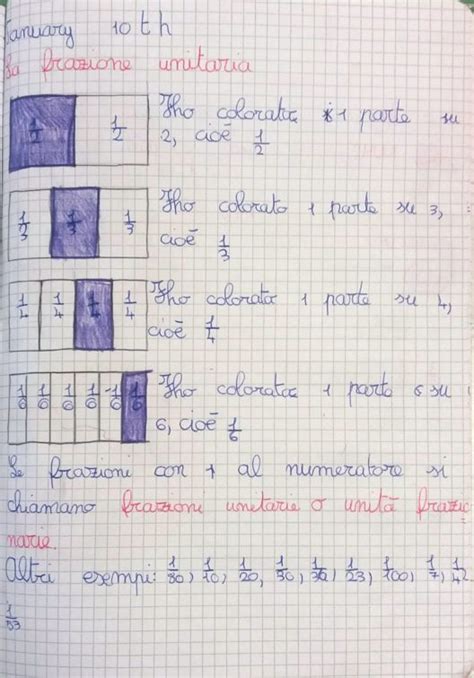 January 10th
La frazione unitaria
1/2 1/2 Ho colorato 1 parte su
2, cioè 1/2
1/3 1/3 1/3 Ho colorato 1 parte su 3,
cioè 1/3
1/4 1/4 1/4 1/4 Ho colorato 1 parte su 4,
cioè 1/4
1/6 1/6 1/6 1/6 1/6 1/6 Ho colorato 1 parte su
6, cioè 1/6
Le frazioni con 1 al numeratore si
chiamano frazioni unitarie o unità frazio
narie.
Altri esempi: 1/80, 1/10, 1/20, 1/30, 1/36, 1/23, 1/100, 1/7, 1/42
1/53